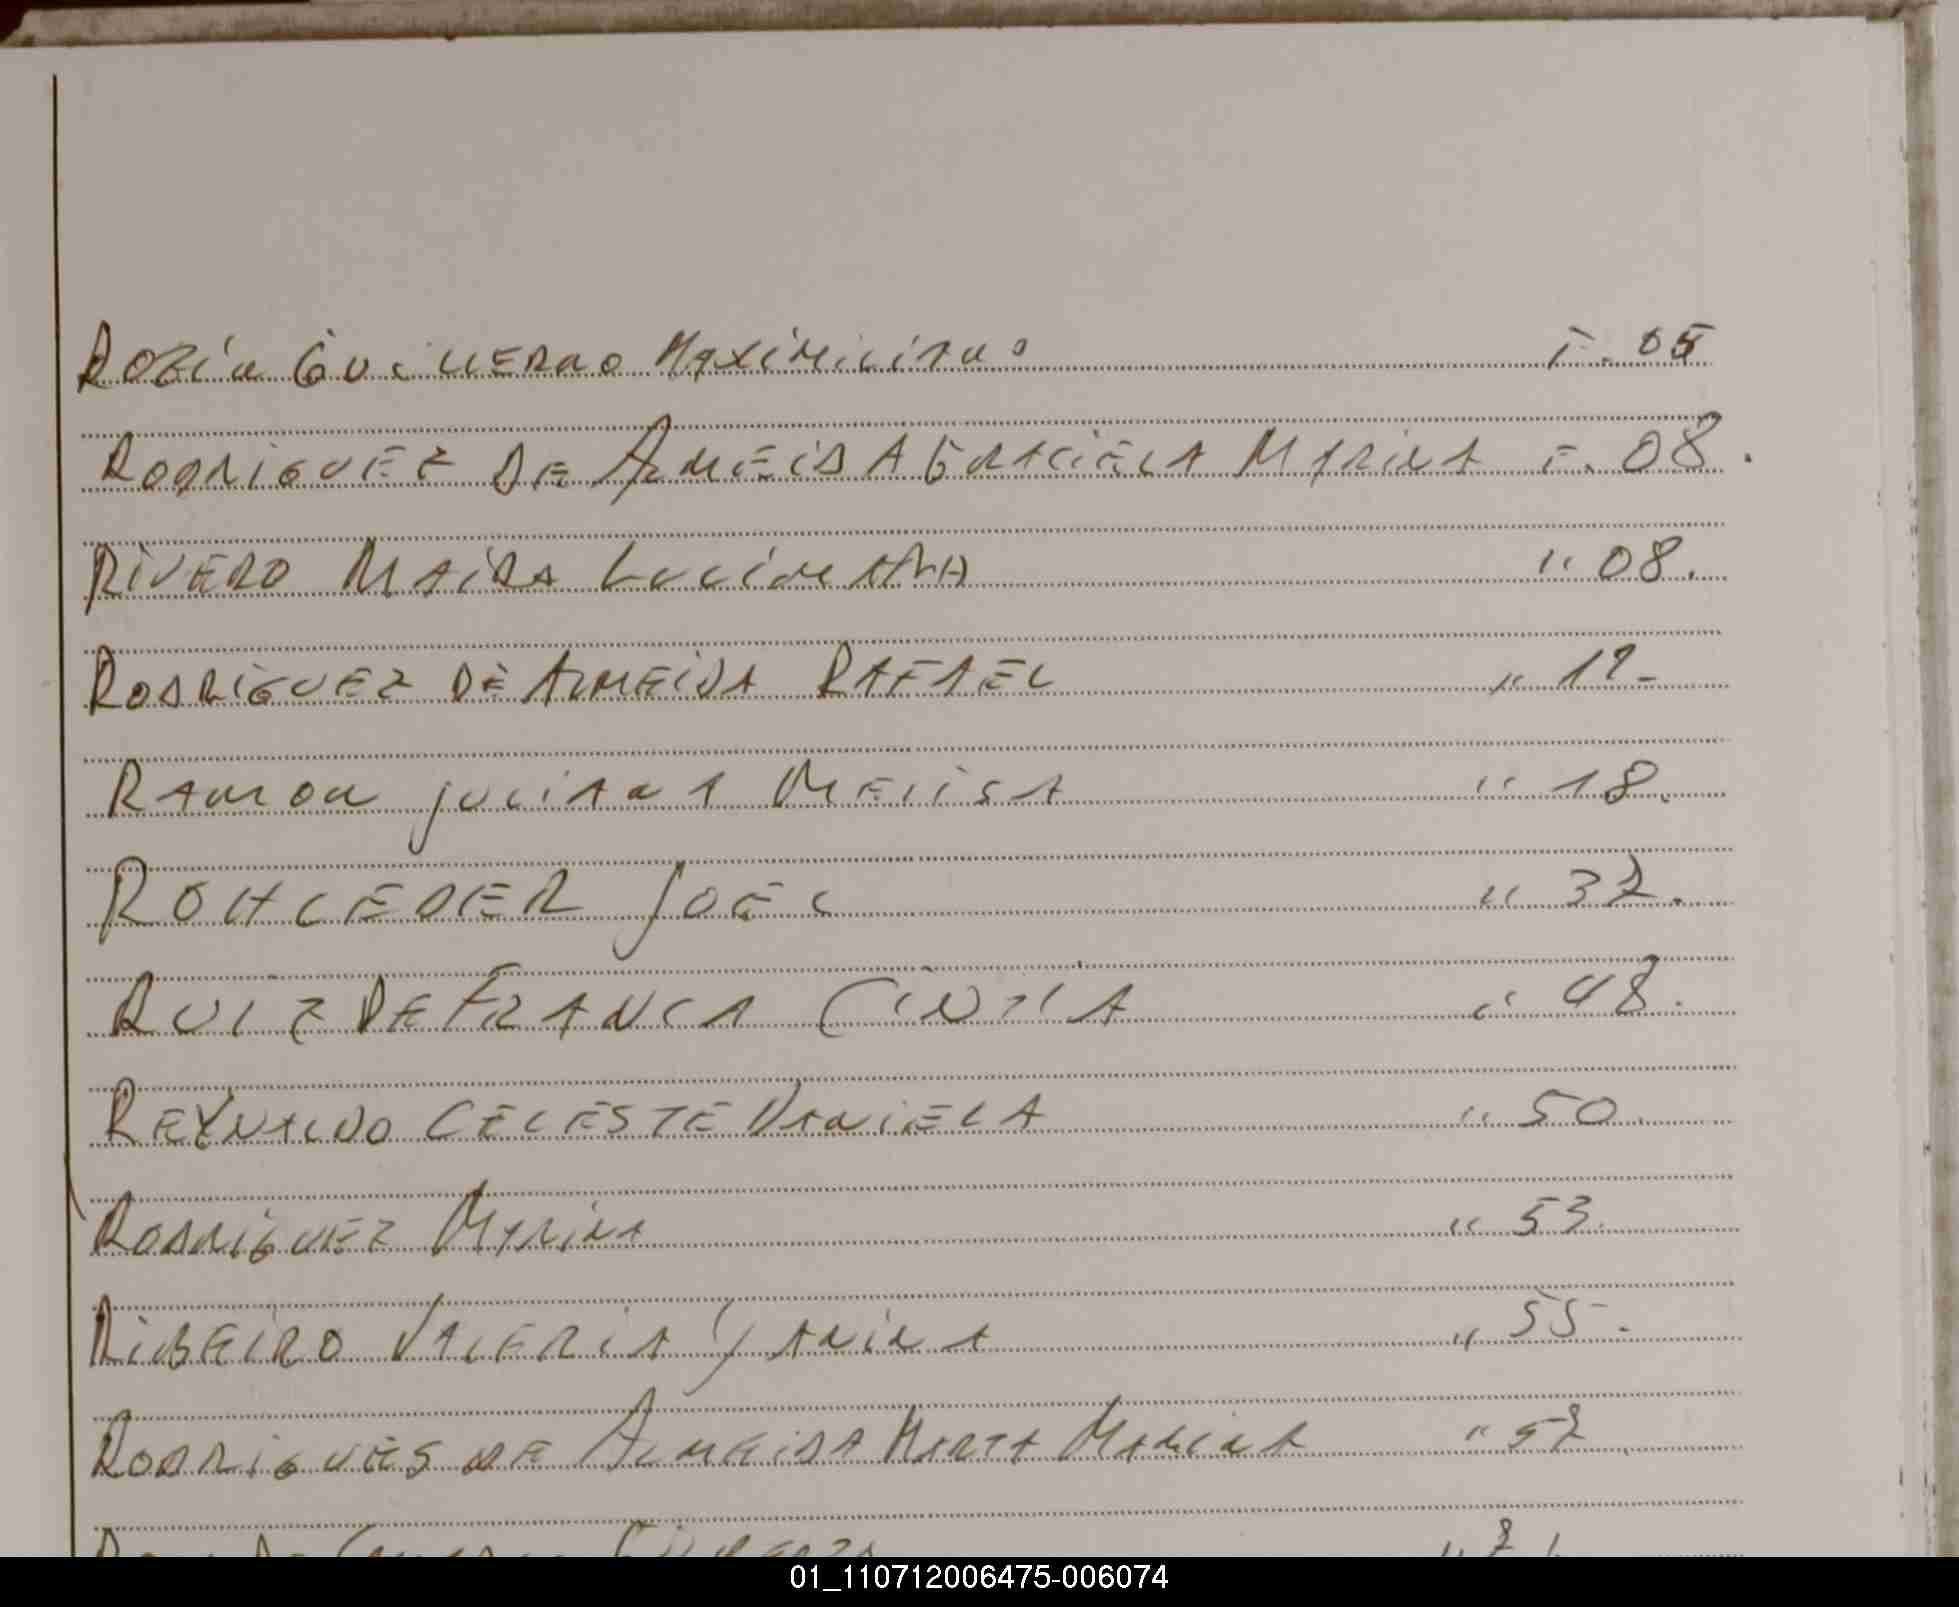 ROBÍN GUILLERMO MAXIMILIANO F. 05
RODRIGUEZ DE ALMEIDA GRACIELA MARINA F. 08.
RIVERO MAIRA LUCIMARA " 08.
RODRIGUEZ DE ALMEIDA RAFAEL " 12-
RAMON JULIANA MELISA " 18.
ROHLEDER JOEL " 32.
RUIZ DE FRANCA CINZIA " 48.
REYNALDO CELESTE DANIELA " 50.
RODRIGUEZ MARINA " 53.
RIBEIRO VALERIA YANINA " 55.
RODRIGUES DE ALMEIDA MARTA MARINA "
01_110712006475-006074